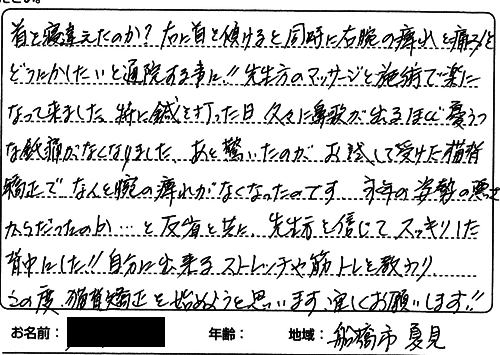 首を寝違えたのか?右に首を傾けると同時に右腕の痺れと痛みを
どうにかしたいと通院する事に!!先生方のマッサージと施術で楽に
なって来ました。特に鍼を打った日、久々に鼻歌が出るほど憂うつ
な鈍痛がなくなりました。あと驚いたのが、お試しで受けた猫背
矯正でなんと腕の痺れがなくなったのです。永年の姿勢の悪さ
からだったのか…と反省と共に、先生方を信じて、スッキリした
背中にした!!自分に出来るストレッチや筋トレを教わり
この度、猫背矯正を始めようと思います、宜しくお願いします!!
お名前: 年齢: 地域: 船橋市 夏見